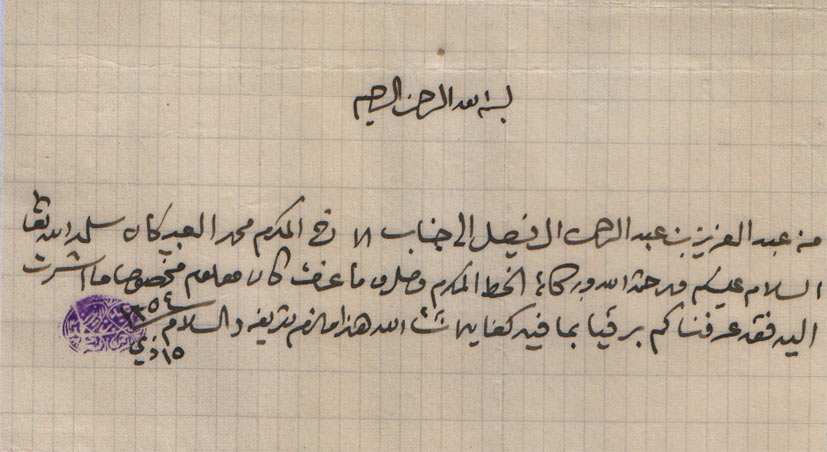 بسم الله الرحمن الرحيم
من عبد العزيز بن عبد الرحمن ال فيصل الى جناب الاخ المكرم محمد العبد سلمه الله تعا
السلام عليكم ورحمة الله وبركاته الخط المكرم وصل وما عرفت كان معلوم مخصوصا ما اشرت
اليه فقد عرفناكم برقيا بما فيه كفايه انشاء الله هذا ما لزم تعريفه والسلام
١٥ ذي
١٣٥٤